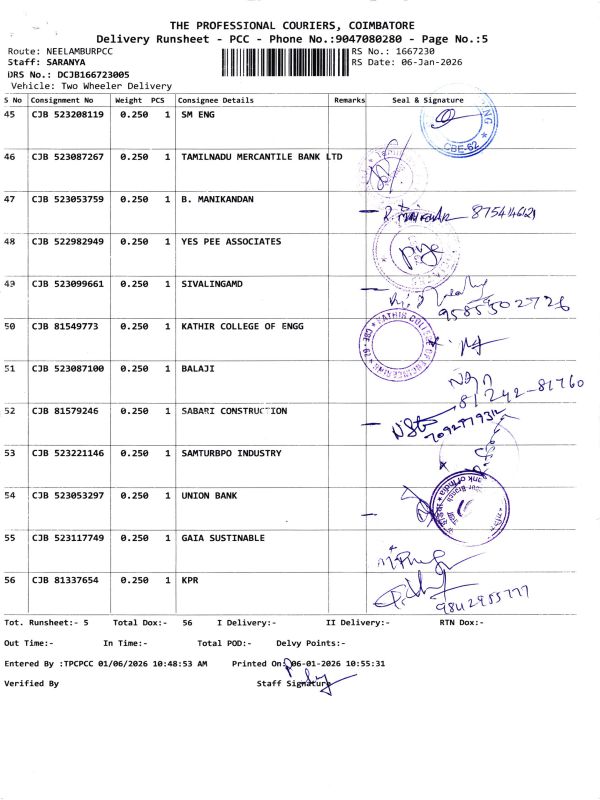 THE PROFESSIONAL COURIERS, COIMBATORE
Delivery Runsheet - PCC - Phone No.:9047080280 - Page No.:5
Route: NEELAMBURPCC RS No.: 1667230
Staff: SARANYA RS Date: 06-Jan-2026
DRS No.: DCJB166723005
Vehicle: Two Wheeler Delivery
S No Consignment No Weight PCS Consignee Details Remarks Seal & Signature
45 CJB 523208119 0.250 1 SM ENG
CBE-62
46 CJB 523087267 0.250 1 TAMILNADU MERCANTILE BANK LTD
47 CJB 523053759 0.250 1 B. MANIKANDAN
48 CJB 522982949 0.250 1 YES PEE ASSOCIATES
49 CJB 523099661 0.250 1 SIVALINGAMD
9585502726
50 CJB 81549773 0.250 1 KATHIR COLLEGE OF ENGG
KATHIR COLLEGE OF ENGINEERING CBE-62
51 CJB 523087100 0.250 1 BALAJI
81242-81760
52 CJB 81579246 0.250 1 SABARI CONSTRUCTION
53 CJB 523221146 0.250 1 SAMTURBPO INDUSTRY
54 CJB 523053297 0.250 1 UNION BANK
55 CJB 523117749 0.250 1 GAIA SUSTINABLE
56 CJB 81337654 0.250 1 KPR
9842955777
Tot. Runsheet:- 5 Total Dox:- 56 I Delivery:- II Delivery:- RTN Dox:-
Out Time:- In Time:- Total POD:- Delvy Points:-
Entered By :TPCPCC 01/06/2026 10:48:53 AM Printed On: 06-01-2026 10:55:31
Verified By Staff Signature